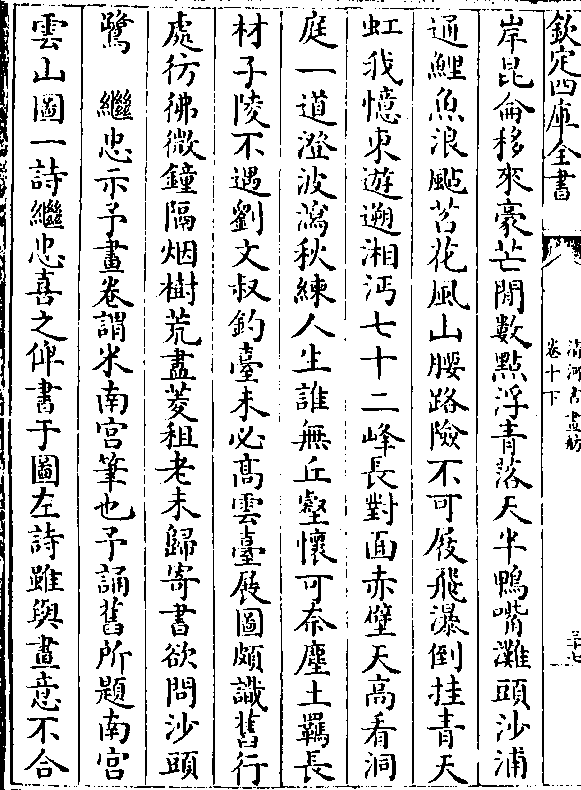 欽定四庫全書
清河書畫舫
卷十下
三十七
岸昆侖移來豪芒間數點浮青落天半鴨嘴灘頭沙浦
通鯉魚浪颭苕花風山腰路險不可屐飛瀑倒挂青天
虹我憶東遊遡湘沔七十二峰長對面赤壁天高看洞
庭一道澄波瀉秋練人生誰無丘壑懷可奈塵土羈長
材子陵不遇劉文叔釣臺未必髙雲臺展圖頗識舊行
處彷彿微鐘隔烟樹荒盡菱租老未歸寄書欲問沙頭
鷺　繼忠示予畫卷謂米南宮筆也予誦舊所題南宮
雲山圖一詩繼忠喜之俾書于圖左詩雖與畫意不合